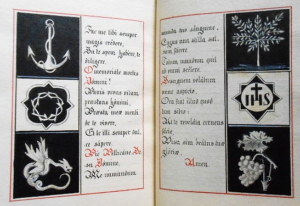 Fac me tibi semper
magis credere,
In te spem habere, te
diligere.
O memoriale mortis
Domini!
Panis vivus vitam,
præstans homini,
Præsta, meæ menti
de te vivere,
Et te illi semper dul-
ce sapere.
Pie Pellicane, Je-
su Domine,
Me immundum
munda tuo sanguine,
Cujus una stilla sal-
vum facere
Totum mundum quit
ab omni scelere.
Jesu quem velatum
nunc aspicio,
Oro fiat illud quod
tam sitio:
Ut te revelata cernens
facie,
Visu sim beatus tuæ
gloriæ.
Amen.
IHS